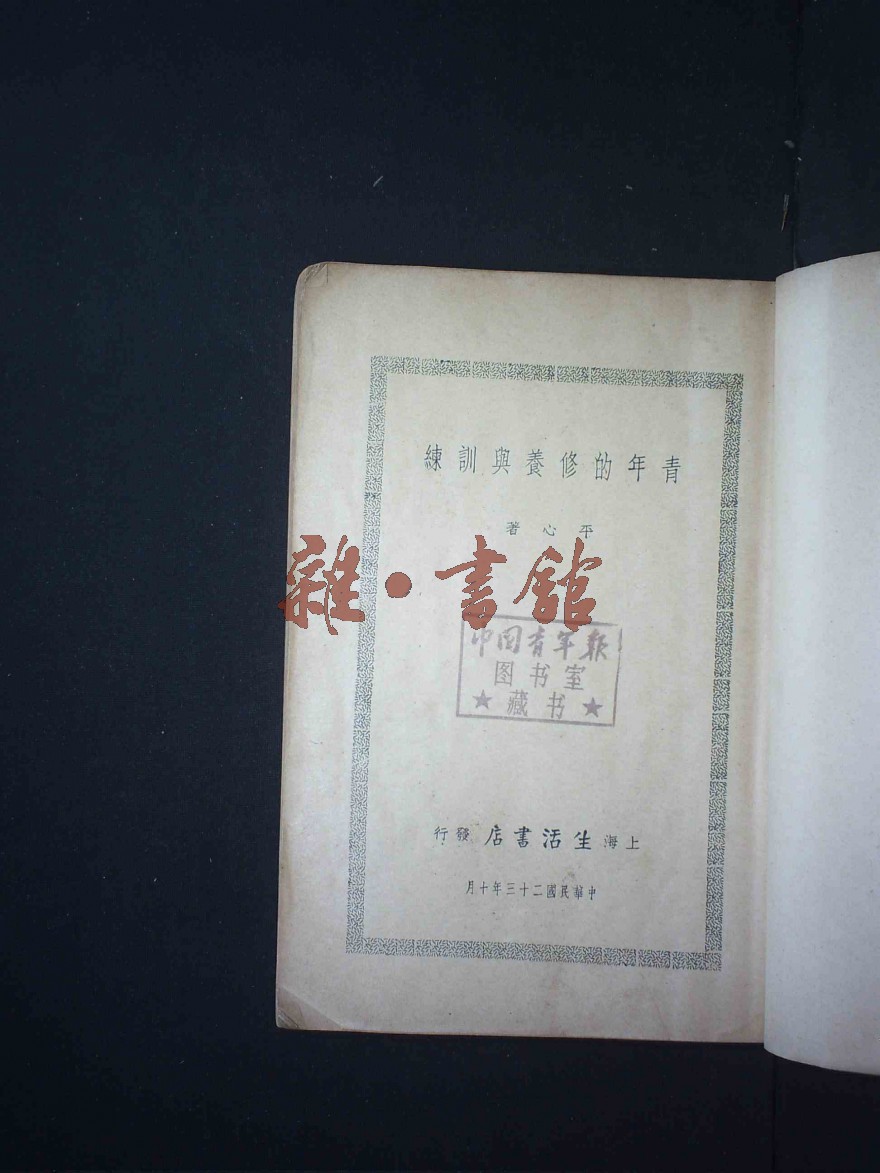 青年的修養與訓練
平心著
雜·書館
中国青年报
图书室
★藏书★
上海生活書店發行
中華民國二十三年十月